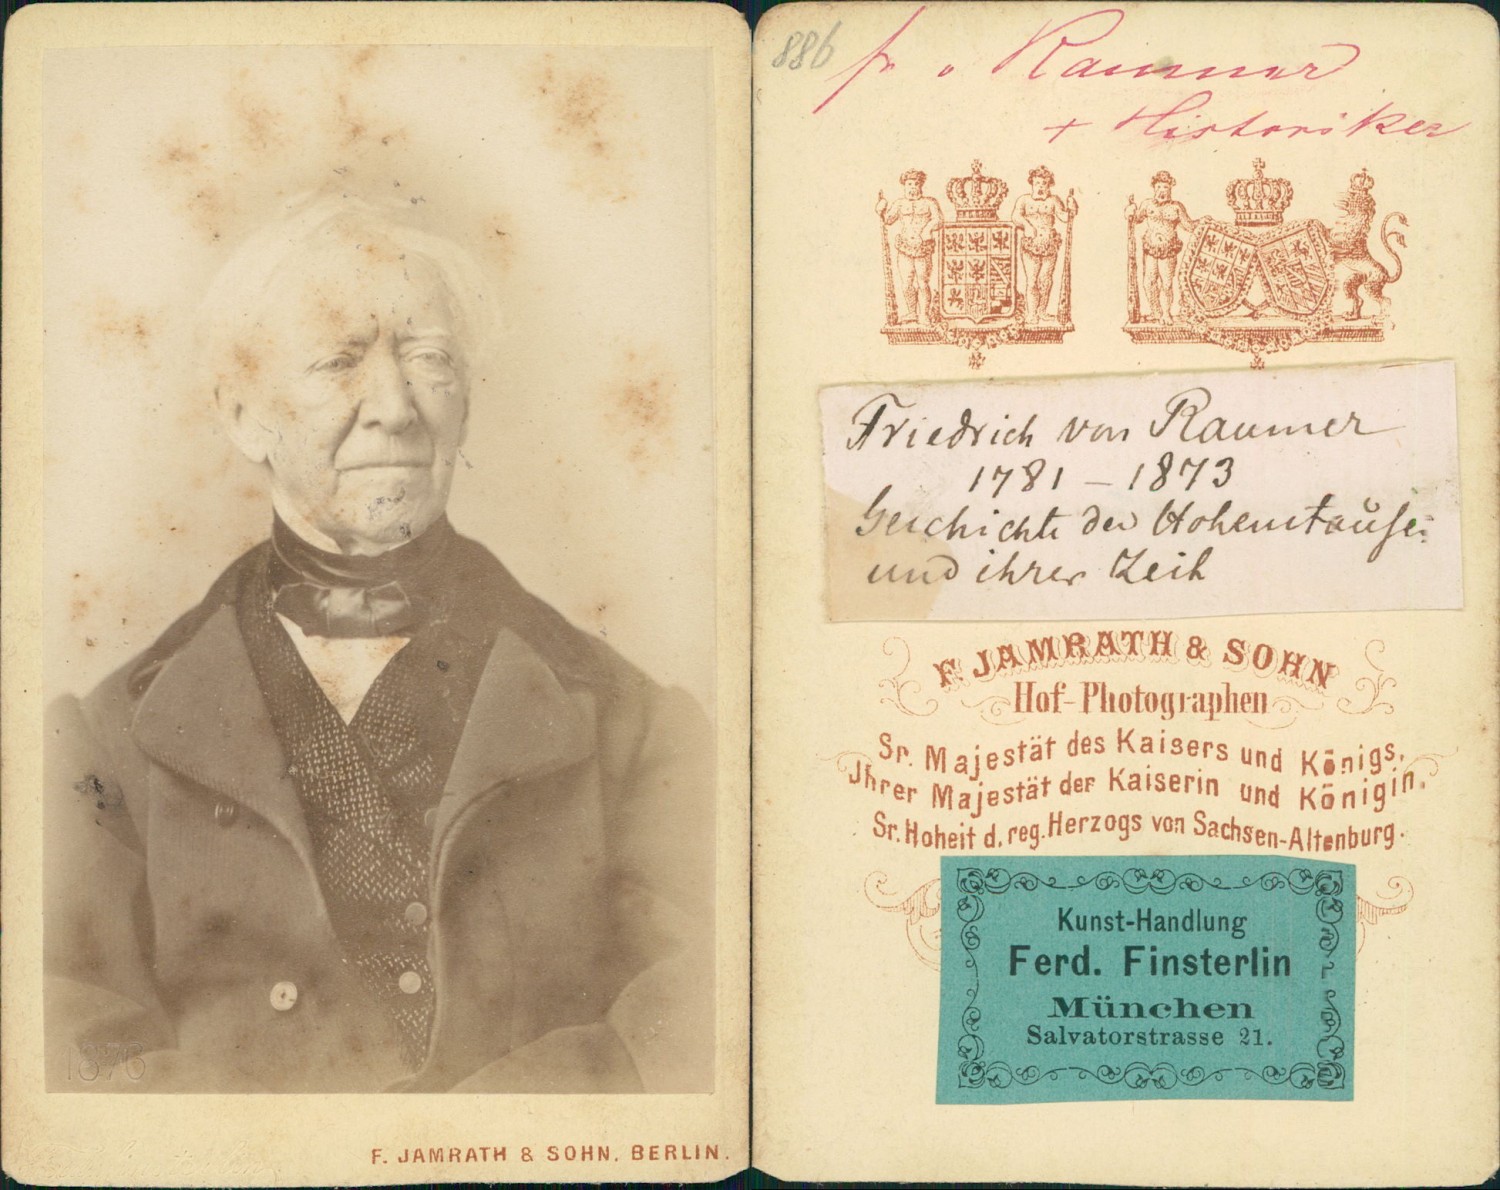 1876
F. JAMRATH & SOHN. BERLIN.
886
fr. v Raumer
+ Historiker
Friedrich von Raumer
1781 – 1873
Geschichte der Hohenstaufen
und ihrer Zeit
F. JAMRATH & SOHN
Hof-Photographen
Sr. Majestät des Kaisers und Königs,
Jhrer Majestät der Kaiserin und Königin,
Sr. Hoheit d. reg. Herzogs von Sachsen-Altenburg.
Kunst-Handlung
Ferd. Finsterlin
München
Salvatorstrasse 21.